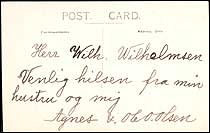 POST CARD.
Herr Wilh. Wilhelmsen
Venlig hilsen fra min
hustru og mig
Agnes o. Ole Olsen